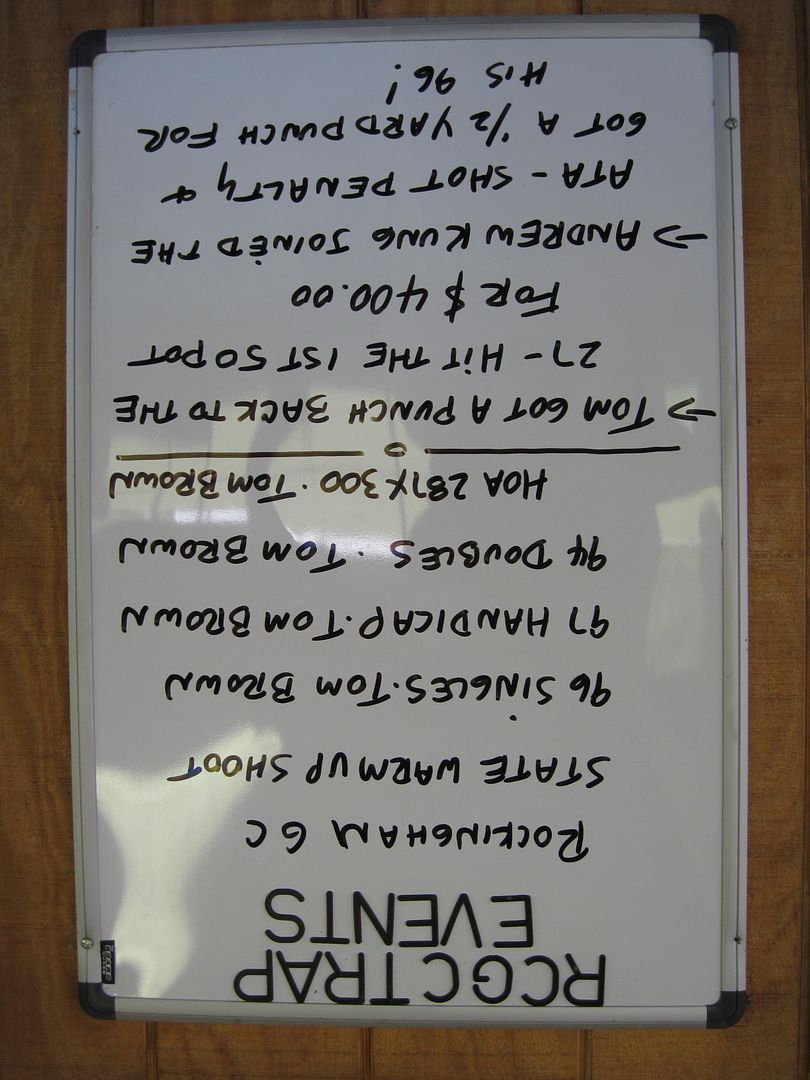 RCGC TRAP
EVENTS
ROCKINGHAM G C
STATE WARM UP SHOOT
96 SINGLES · TOM BROWN
97 HANDICAP · TOM BROWN
94 DOUBLES · TOM BROWN
HOA 287X300 · TOM BROWN
→ TOM GOT A PUNCH BACK TO THE
27 - HIT THE 1ST 50 POT
FOR $400.00
→ ANDREW KUNG JOINED THE
ATA - SHOT PENALTY &
GOT A 1/2 YARD PUNCH FOR
HIS 96!